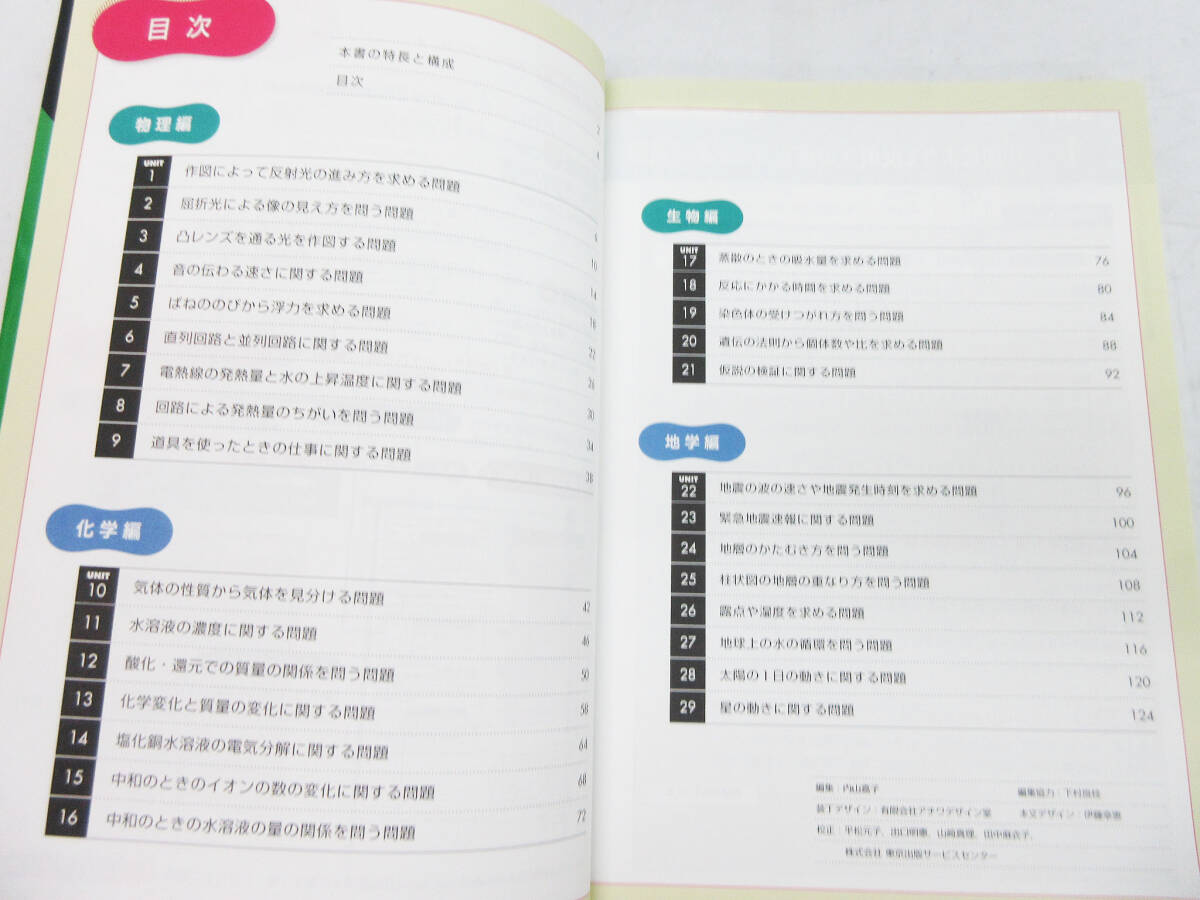 目次
本書の特長と構成 2
目次 4
物理編
UNIT
1 作図によって反射光の進み方を求める問題 6
2 屈折光による像の見え方を問う問題 10
3 凸レンズを通る光を作図する問題 14
4 音の伝わる速さに関する問題 18
5 ばねののびから浮力を求める問題 22
6 直列回路と並列回路に関する問題 26
7 電熱線の発熱量と水の上昇温度に関する問題 30
8 回路による発熱量のちがいを問う問題 34
9 道具を使ったときの仕事に関する問題 38
化学編
UNIT
10 気体の性質から気体を見分ける問題 42
11 水溶液の濃度に関する問題 46
12 酸化・還元での質量の関係を問う問題 50
13 化学変化と質量の変化に関する問題 58
14 塩化銅水溶液の電気分解に関する問題 64
15 中和のときのイオンの数の変化に関する問題 68
16 中和のときの水溶液の量の関係を問う問題 72
生物編
UNIT
17 蒸散のときの吸水量を求める問題 76
18 反応にかかる時間を求める問題 80
19 染色体の受けつがれ方を問う問題 84
20 遺伝の法則から個体数や比を求める問題 88
21 仮説の検証に関する問題 92
地学編
UNIT
22 地震の波の速さや地震発生時刻を求める問題 96
23 緊急地震速報に関する問題 100
24 地層のかたむき方を問う問題 104
25 柱状図の地層の重なり方を問う問題 108
26 露点や湿度を求める問題 112
27 地球上の水の循環を問う問題 116
28 太陽の1日の動きに関する問題 120
29 星の動きに関する問題 124
編集：内山嘉子 編集協力：下村良枝
装丁デザイン：有限会社アチワデザイン室 本文デザイン：伊藤幸恵
校正：平松元子、出口明憲、山﨑真理、田中麻衣子、
株式会社 東京出版サービスセンター